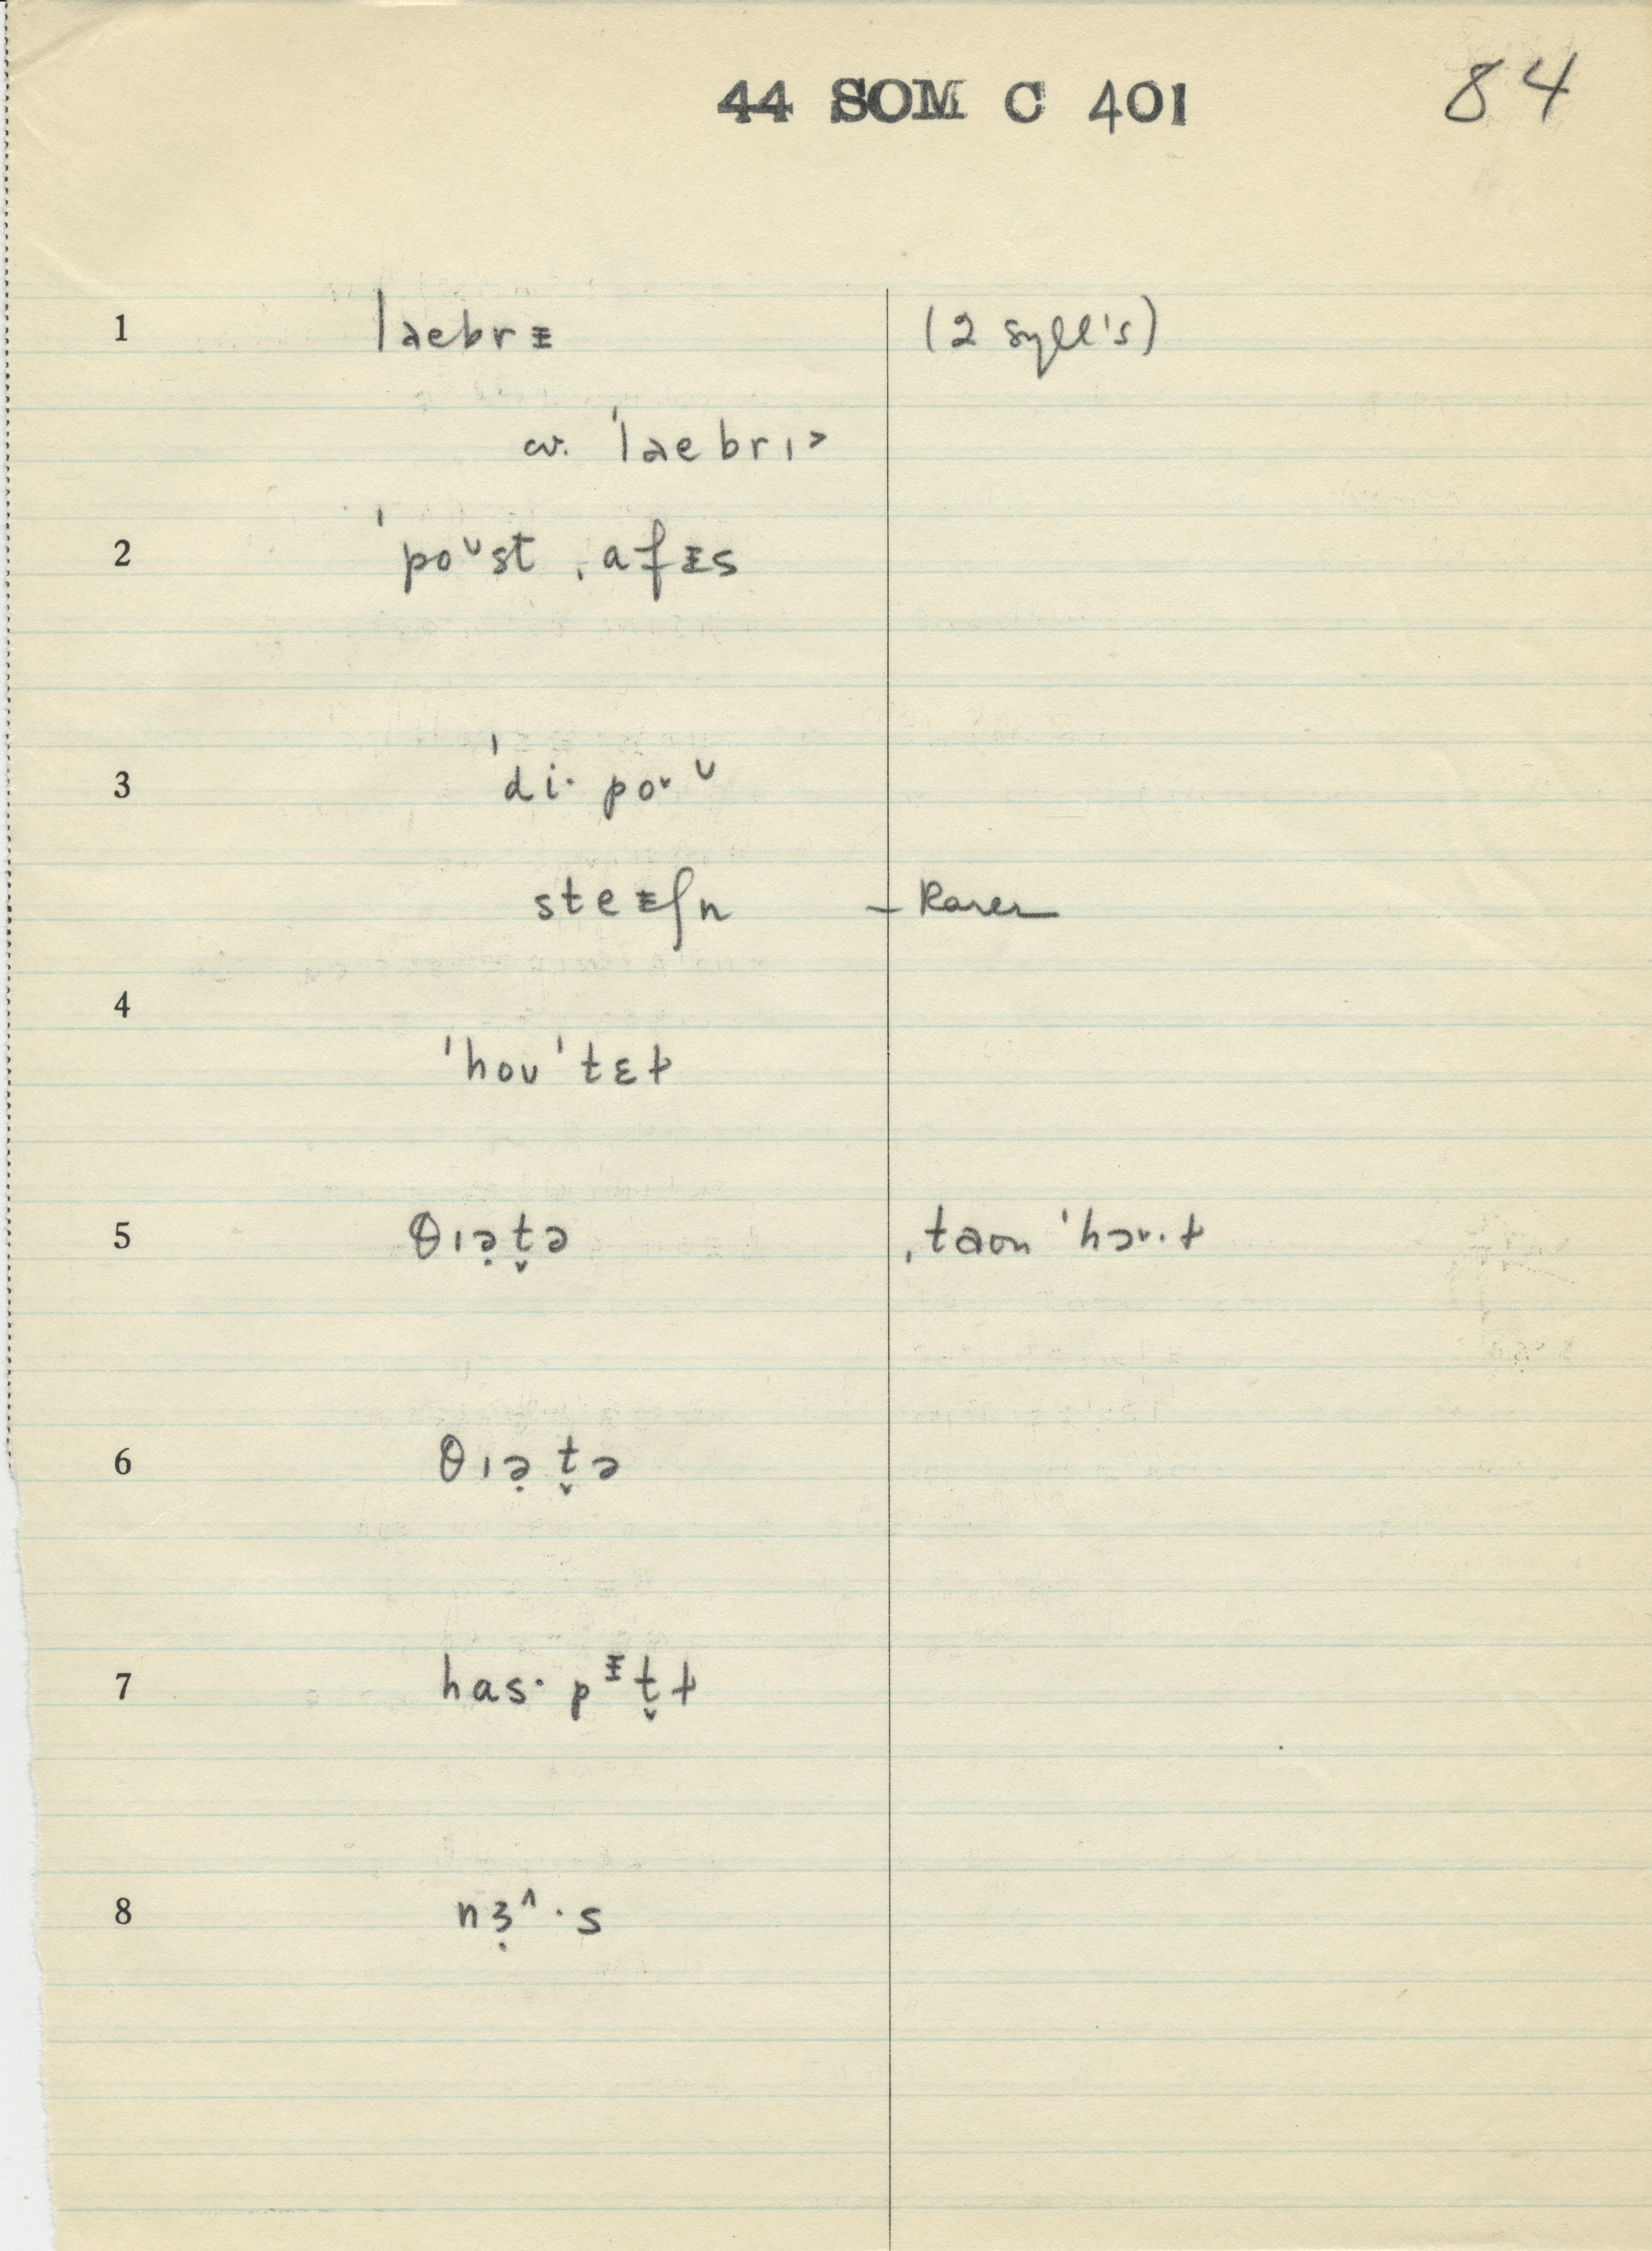 44 SOM C 401 84
1 laebrᵻ (2 syll's)
cv. ˈlaebrɪə
2 ˈpoᶷst ˌafᵻs
3 ˈdi· po˅ ᶷ
steᵻʃn – Rarer
4 ˈhoʊˈtɛɫ
5 θɪə̣t̬ə ˌtaon ˈhɔ˅·ɫ
6 θɪə̣t̬ə
7 has· pᵻt̬ɫ
8 nɜ̣^·s